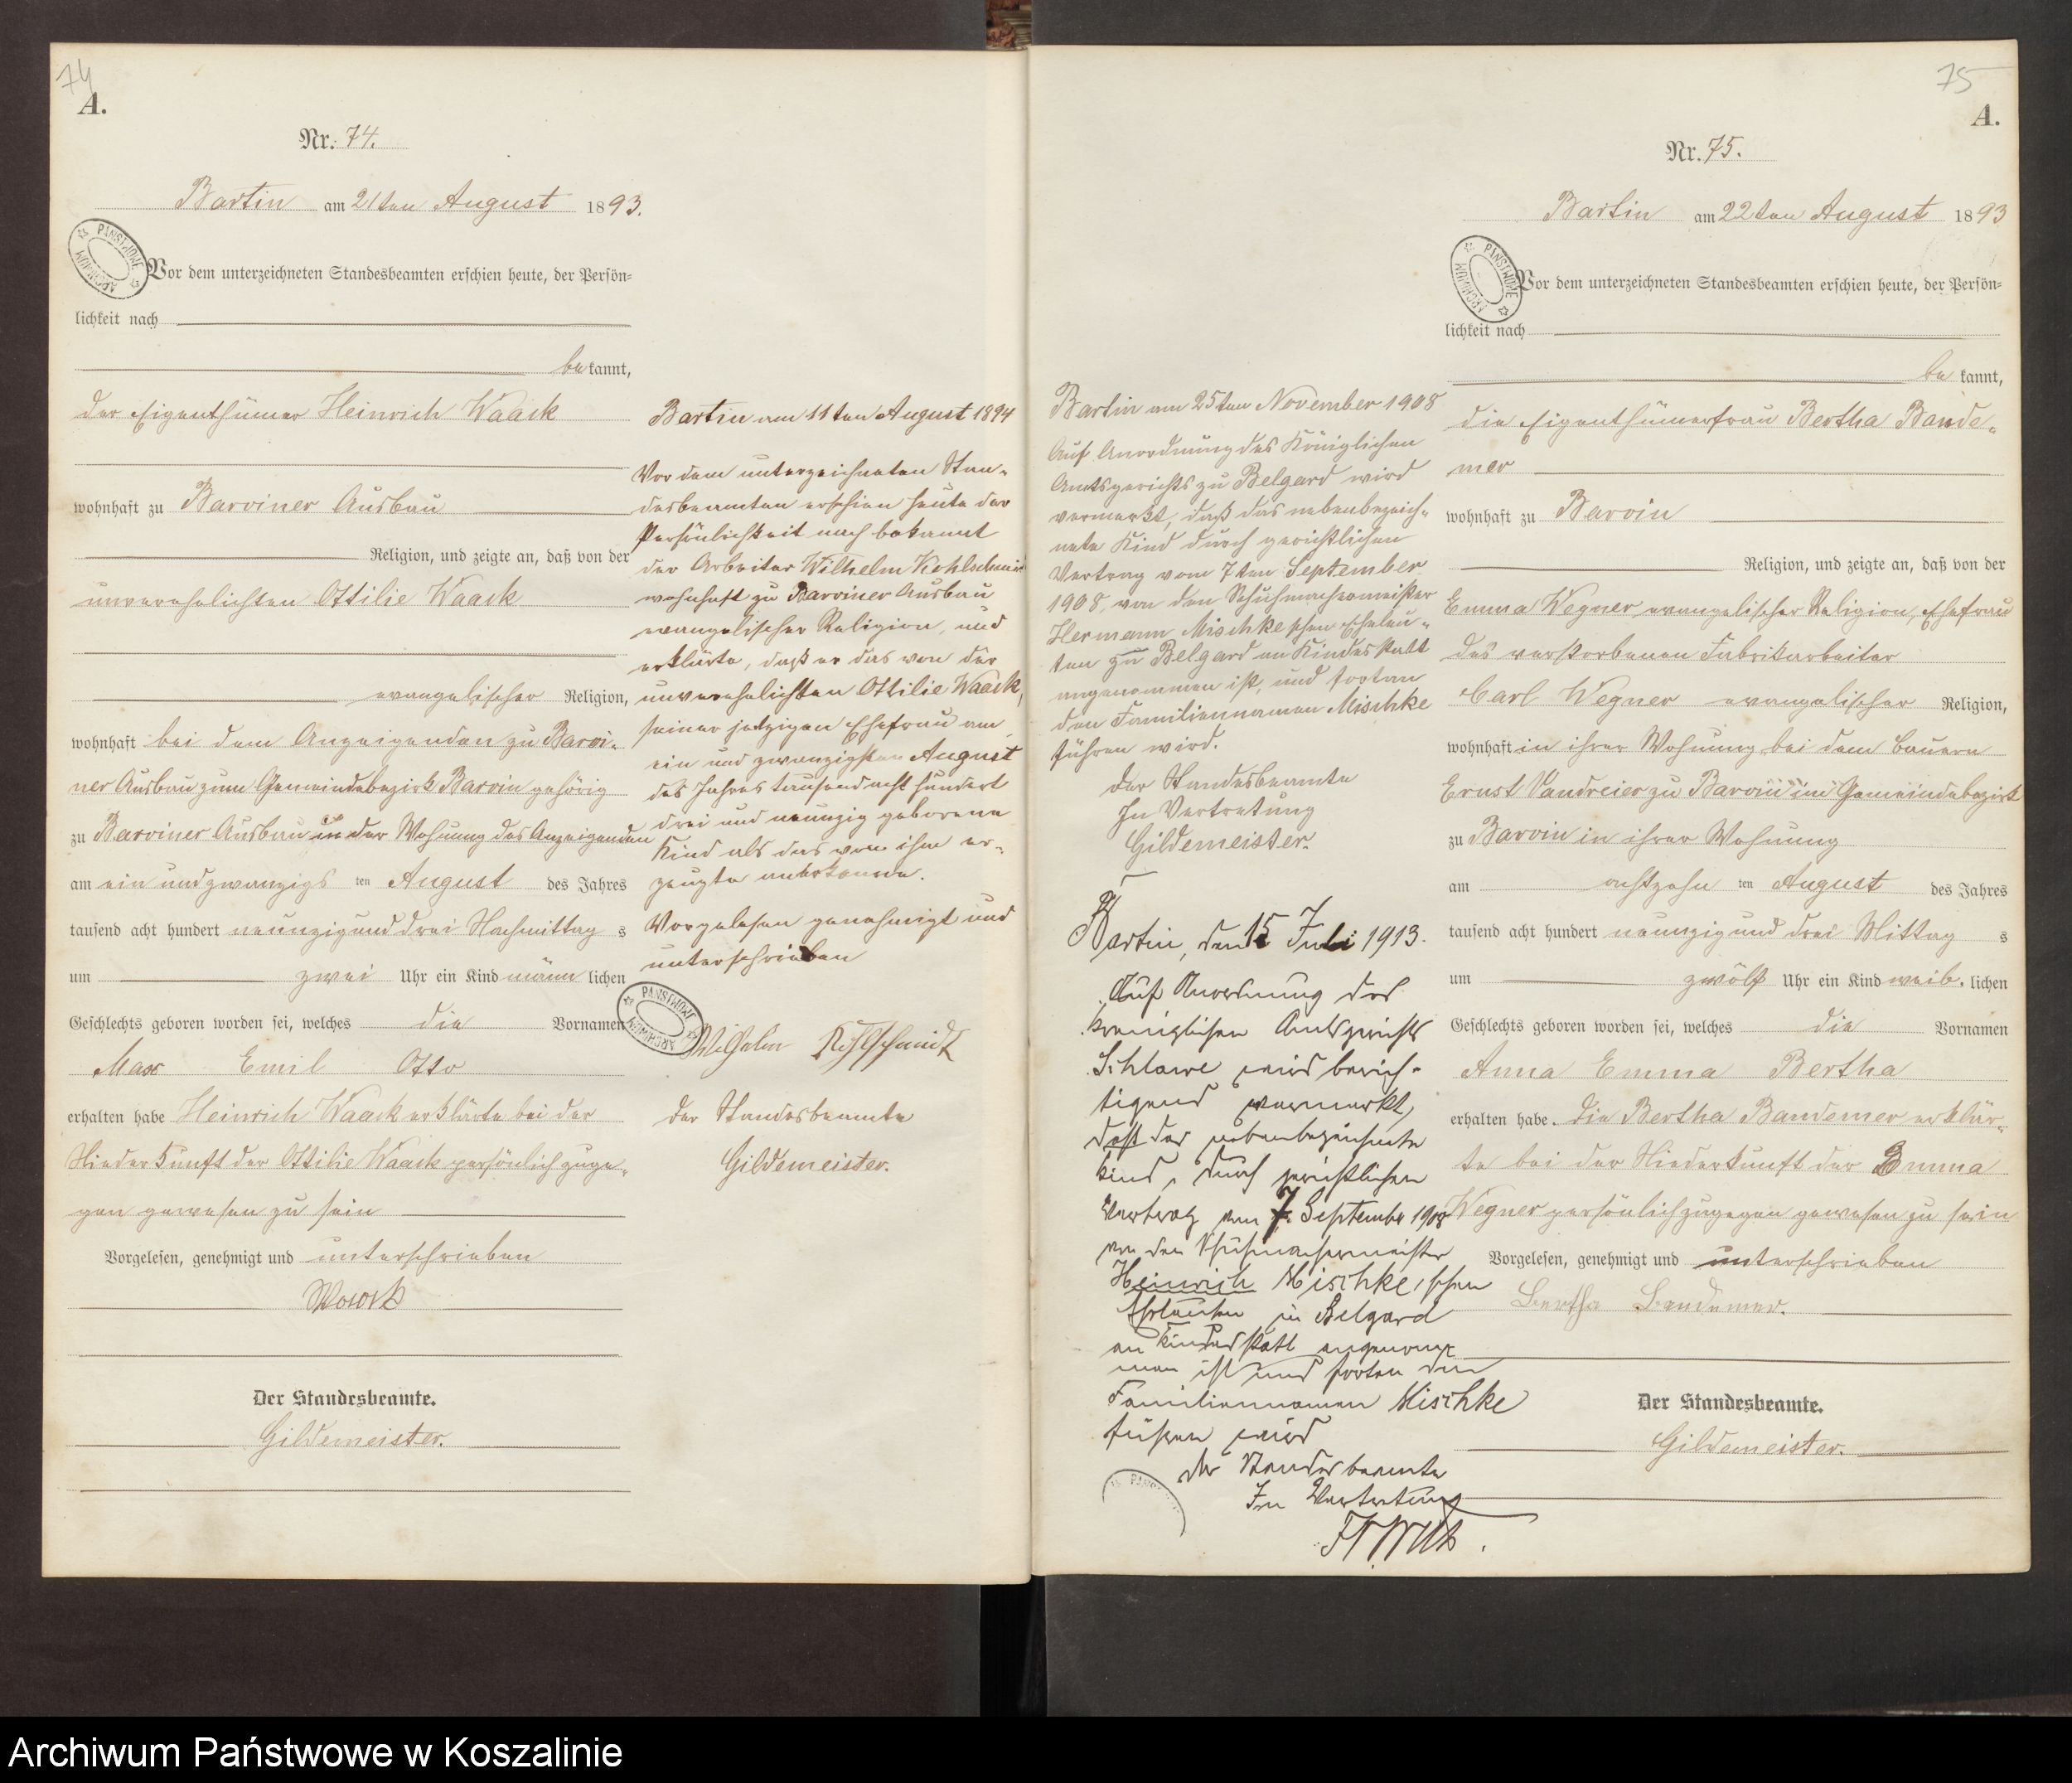 74
A.
Nr. 74.
Bartin am 21ten August 1893.
Vor dem unterzeichneten Standesbeamten erschien heute, der Persön=
lichkeit nach
be kannt,
der Eigenthümer Heinrich Waack
wohnhaft zu Barviner Ausbau
Religion, und zeigte an, daß von der
unverehelichten Ottilie Waack
evangelischer Religion,
wohnhaft bei dem Anzeigenden zu Barvi-
ner Ausbau zum Gemeindebezirk Barvin gehörig
zu Barviner Ausbau in der Wohnung des Anzeigenden
am ein und zwanzigs ten August des Jahres
tausend acht hundert neunzig und drei Nachmittag s
um zwei Uhr ein Kind männ lichen
Geschlechts geboren worden sei, welches die Vornamen
Max Emil Otto
erhalten habe Heinrich Waack erklärte bei der
Niederkunft der Ottilie Waack persönlich zuge-
gen gewesen zu sein
Vorgelesen, genehmigt und unterschrieben
Der Standesbeamte.
Gildemeister.
Bartin am 11ten August 1894
Vor dem unterzeichneten Stan-
desbeamten erschien heute der
Persönlichkeit nach bekannt
der Arbeiter Wilhelm Kohlschmidt
wohnhaft zu Barviner Ausbau
evangelischer Religion, und
erklärte, daß er das von der
unverehelichten Ottilie Waack,
seiner jetzigen Ehefrau am
ein und zwanzigsten August
des Jahres tausend acht hundert
drei und neunzig geborene
Kind als das von ihm er-
zeugte anerkenne.
Vorgelesen genehmigt und
unterschrieben
Wilhelm Kohlschmidt
Der Standesbeamte
Gildemeister.
ARCHIWUM PANSTWOWE
75
A.
Nr. 75.
Bartin am 22ten August 1893
Vor dem unterzeichneten Standesbeamten erschien heute, der Persön=
lichkeit nach
be kannt,
die Eigenthümerfrau Bertha Bande-
mer
wohnhaft zu Barvin
Religion, und zeigte an, daß von der
Emma Wegner, evangelischer Religion, Ehefrau
des verstorbenen Fabrikarbeiter
Carl Wegner evangelischer Religion,
wohnhaft in ihrer Wohnung bei dem Bauern
Ernst Vandreier zu Barvin im Gemeindebezirk
zu Barvin in ihrer Wohnung
am achtzehn ten August des Jahres
tausend acht hundert neunzig und drei Mittag s
um zwölf Uhr ein Kind weib- lichen
Geschlechts geboren worden sei, welches die Vornamen
Anna Emma Bertha
erhalten habe. Die Bertha Bandemer erklär-
te bei der Niederkunft der Emma
Wegner persönlich zugegen gewesen zu sein
Vorgelesen, genehmigt und unterschrieben
Bertha Bandemer.
Der Standesbeamte.
Gildemeister.
Bartin am 25ten November 1908
Auf Anordnung des Königlichen
Amtsgerichts zu Belgard wird
vermerkt, daß das nebenbezeich-
nete Kind durch gerichtlichen
Vertrag vom 7ten September
1908, von den Schuhmachermeister
Hermann Mischke schen Eheleu-
ten zu Belgard an Kindesstatt
angenommen ist, und fortan
den Familiennamen Mischke
führen wird.
Der Standesbeamte
In Vertretung
Gildemeister.
Bartin, den 15 Juli 1913.
Auf Anordnung des
Königlichen Amtsgerichts
Schlawe wird berich-
tigend vermerkt,
daß das nebenbezeichnete
Kind, durch gerichtlichen
Vertrag vom 7. September 1908
von den Schuhmachermeister
Heinrich Mischke'schen
Eheleuten in Belgard
an Kindesstatt angenom-
men ist und fortan den
Familiennamen Mischke
führen wird
Der Standesbeamte
In Vertretung
Archiwum Państwowe w Koszalinie